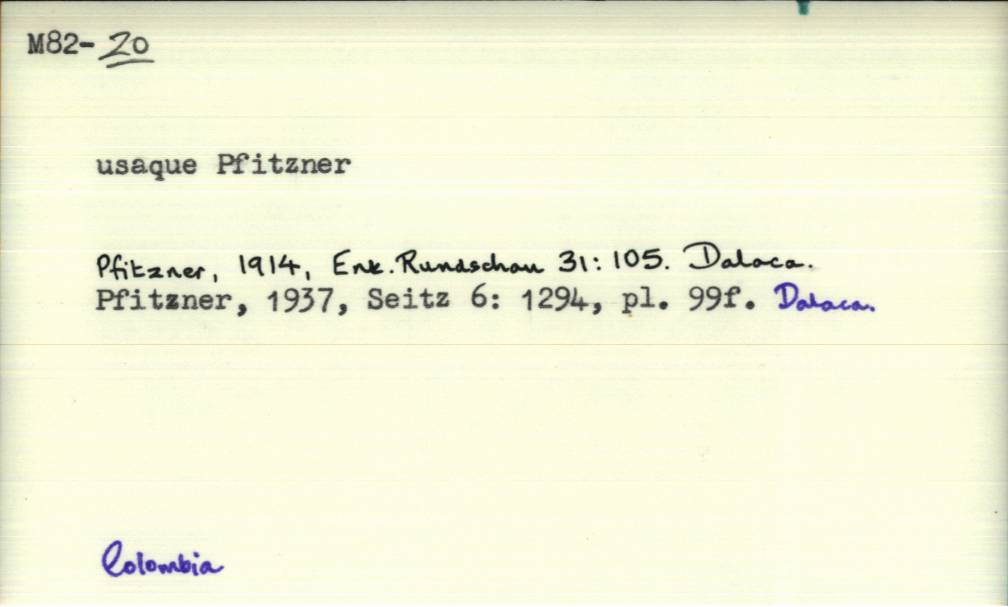 M82-20
usaque Pfitzner
Pfitzner, 1914, Ent. Rundschau 31: 105. Dalaca.
Pfitzner, 1937, Seitz 6: 1294, pl. 99f. Dalaca.
Colombia